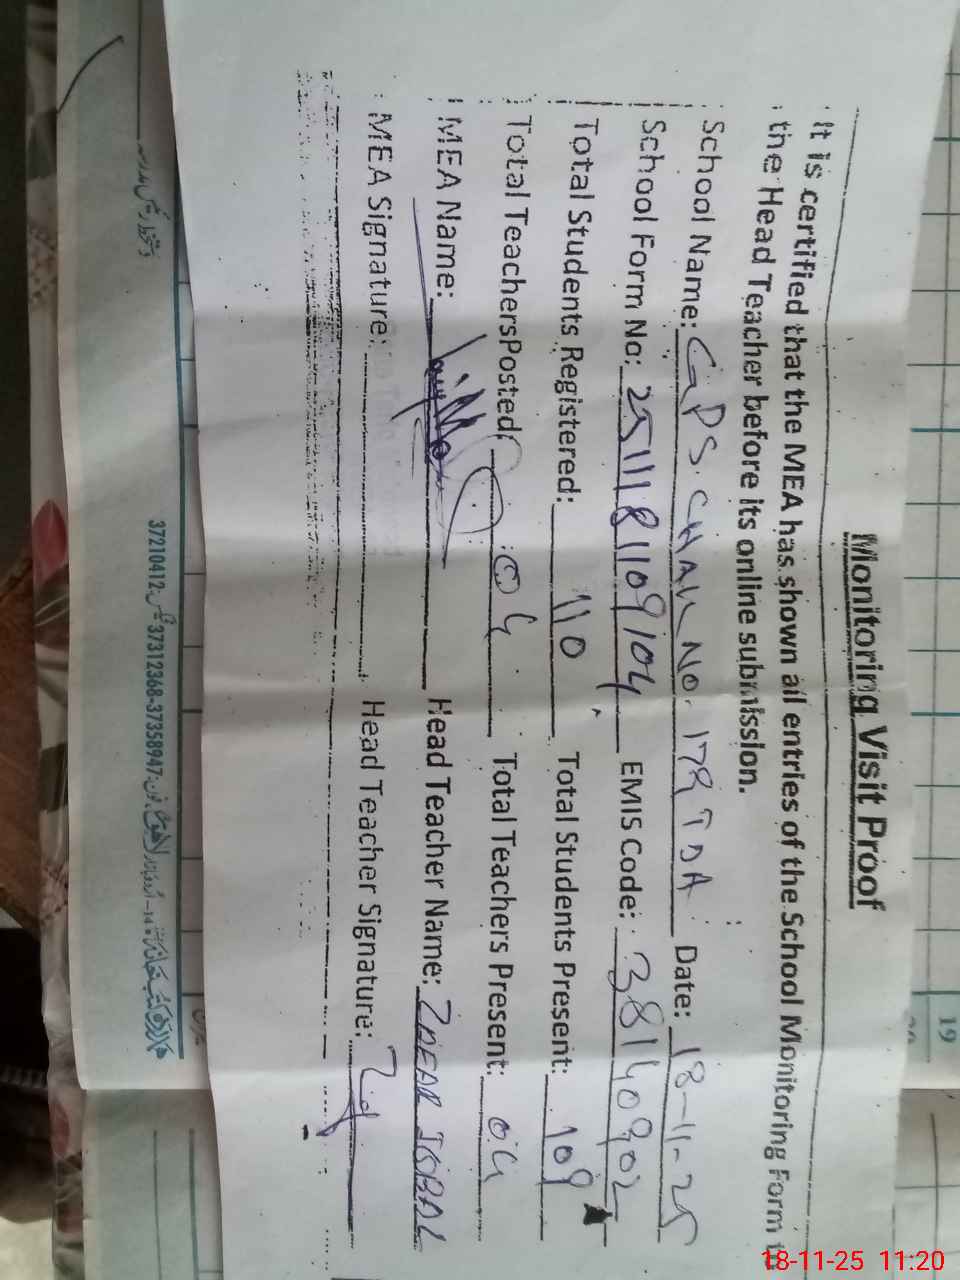 Monitoring Visit Proof
It is certified that the MEA has shown all entries of the School Monitoring Form to
the Head Teacher before its online submission.
School Name: GPS. CHAK NO. 178 TDA Date: 18-11-25
School Form No: 2511181109104 EMIS Code: 38140902
Total Students Registered: 110 Total Students Present: 109
Total TeachersPosted: 04 Total Teachers Present: 04
MEA Name: Head Teacher Name: IQBAL
MEA Signature: Head Teacher Signature:
37210412 37312368-37358947
19
18-11-25 11:20